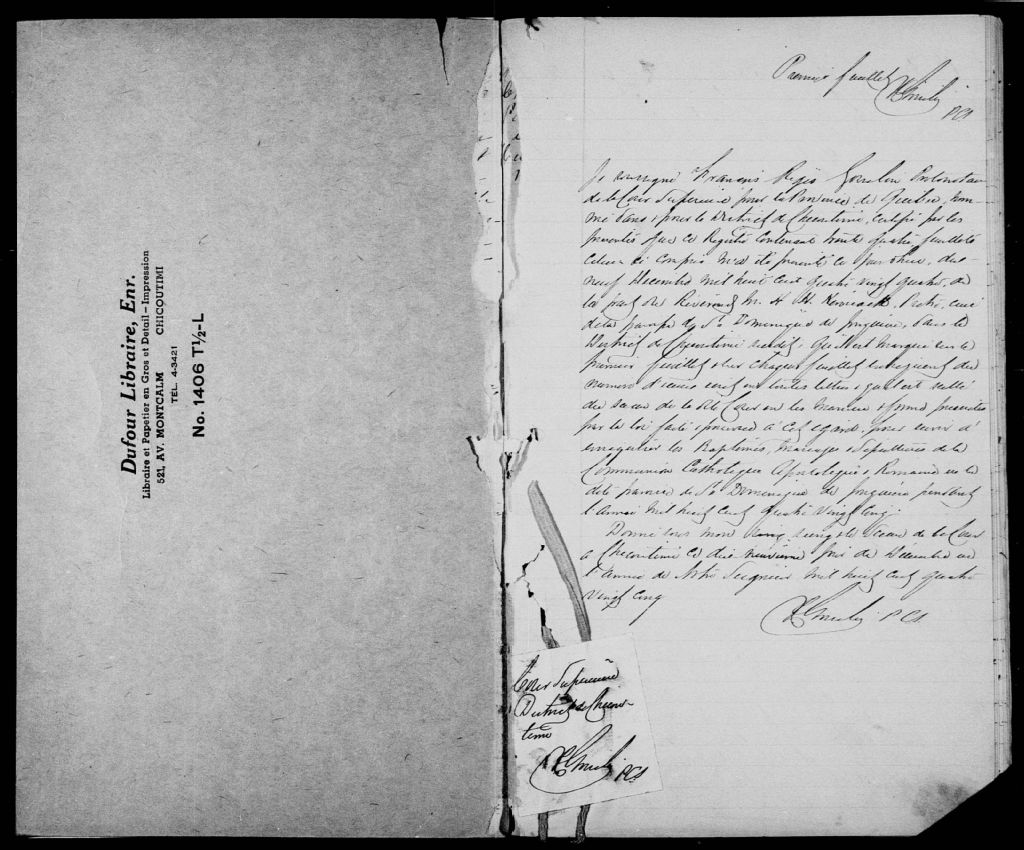 Dufour Libraire, Enr.
Libraire et Papetier en Gros et Detail — Impression
521, AV. MONTCALM CHICOUTIMI
TÉL. 4-3421
No. 1406 T½-L
Premier feuillet
PCS
Je soussigné François Régis Gosselin Protonotaire
de la Cour Supérieure pour la Province de Québec, nom-
mé dans & pour le District de Chicoutimi, Certifie par les
présentes que ce Registre contenant trente quatre feuillets
celui ci compris m'a été présenté ce jour d'hui, dix
neuf Décembre mil huit cent quatre vingt quatre, de
la part du Révérend M. H. Kérouack, Prêtre, curé
de la paroisse de St Dominique de Jonquière, dans le
District de Chicoutimi susdit, qu'il est marqué sur le
premier feuillet & sur chaque feuillet subséquent du
numéro d'icelui écrit en toutes lettres, & qu'il est scellé
du sceau de la dite Cour en la manière & forme prescrites
par la loi faite & pourvue à cet égard, pour servir à
enregistrer les Baptêmes, Mariages & Sépultures de la
Communion Catholique Apostolique & Romaine en la
dite paroisse de St Dominique de Jonquière pendant
l'année mil huit cent quatre vingt cinq.
Donné sous mon seing & le sceau de la Cour
à Chicoutimi ce dix neuvième jour de Décembre en
l'année de Notre Seigneur mil huit cent quatre
vingt cinq
PCS
Cour Supérieure
District de Chicou-
timi
PCS